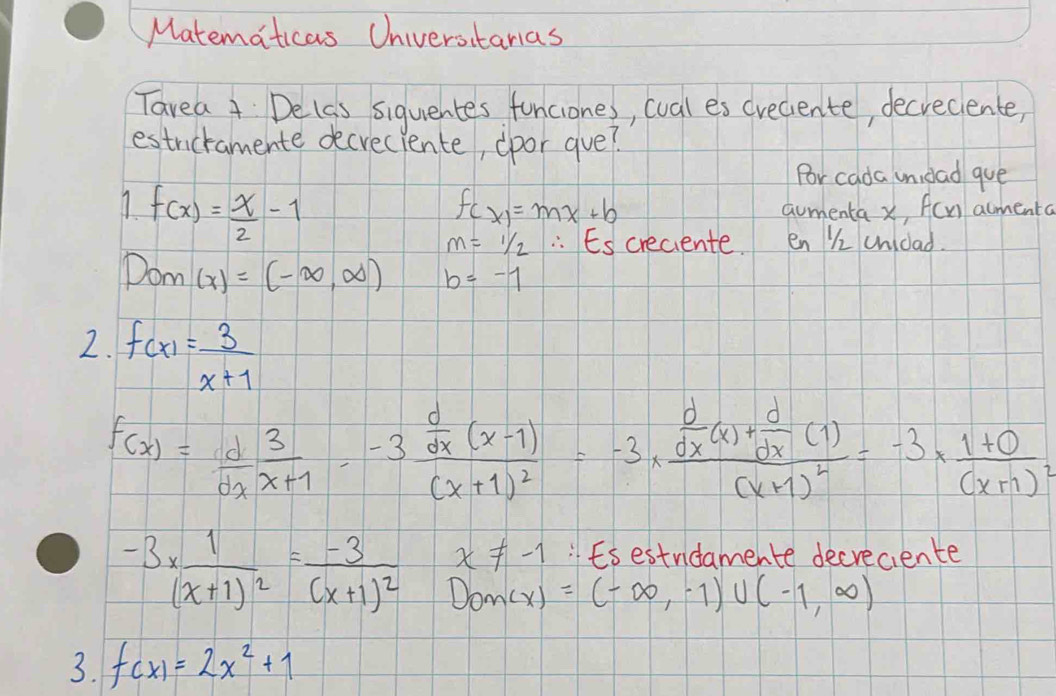 Matemáticas Universitarias
Tarea 7: De las siguientes funciones, cual es creciente, decreciente,
estrictamente decreciente, ¿por que?
1. f(x) = x/2 - 1
f(x) = mx + b
m = 1/2 ∴ Es creciente.
b = -1
Por cada unidad que
aumenta x, f(x) aumenta
en 1/2 unidad.
Dom (x) = (-∞, ∞)
2. f(x) = 3/(x+1)
f(x) = d/dx 3/(x+1) - -3 d/dx (x-1)/(x+1)² = -3 × (d/dx (x) + d/dx (1))/(x+1)² = -3 × (1+0)/(x+1)²
-3 × 1/(x+1)² = -3/(x+1)² x ≠ -1 ∴ Es estridamente decreciente
Dom(x) = (-∞, -1) U (-1, ∞)
3. f(x) = 2x² + 1